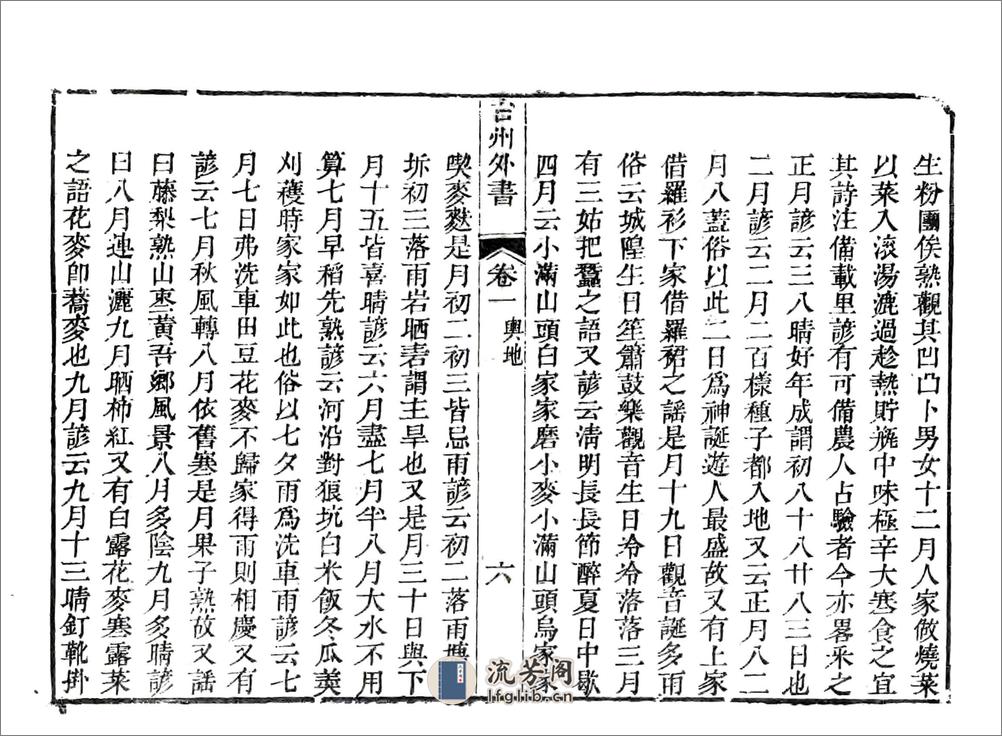 生粉團俟熟觀其凹凸卜男女十二月人家做燒菜
以菜入滾湯漉過趁熱貯瓶中味極辛大寒食之宜
其詩注備載里諺有可備農人占驗者今亦畧釆之
正月諺云三八晴好年成謂初八十八廿八三日也
二月諺云二月二百樣種子都入地又云正月八二
月八蓋俗以此二日爲神誕遊人最盛故又有上家
借羅衫下家借羅裙之謠是月十九日觀音誕多雨
俗云城隍生日笙簫鼓樂觀音生日冷冷落落三月
有三姑把蠶之語又諺云淸明長長節醉夏日中歇
四月云小滿山頭白家家磨小麥小滿山頭烏家家
台州外書
卷一
輿地
六
喫麥麩是月初二初三皆忌雨諺云初二落雨塘
坼初三落雨岩晒㓉謂主旱也又是月三十日與下
月十五皆喜晴諺云六月盡七月半八月大水不用
算七月早稻先熟諺云河沿對狼坑白米飯冬瓜羮
刈穫時家家如此也俗以七夕雨爲洗車雨諺云七
月七日弗洗車田豆花麥不歸家得雨則相慶又有
諺云七月秋風轉八月依舊寒是月果子熟故又謠
曰藤梨熟山棗黃吾鄉風景八月多陰九月多晴諺
曰八月連山灑九月晒柿紅又有白露花麥寒露菜
之語花麥卽蕎麥也九月諺云九月十三晴釘靴掛
流芳阁
lfglib.cn